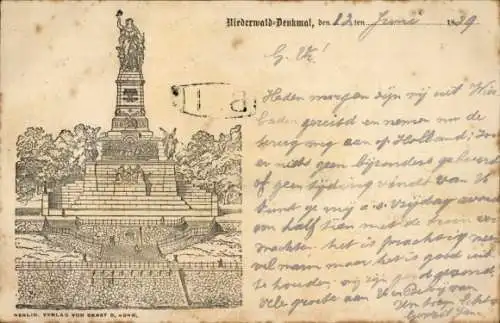 Niederwald-Denkmal, den 12ten Juni 1889
Heden morgen zijn wij uit Wies
baden gereisd en nemen nu de
terug weg aan op Holland;
er niet geen bijzonders gebeurd
of geen tijding vindt van U
kunt ge mij a.s. vrijdag avond
om half tien met de trein ver
wachten. het is prachtig
veel warm maar het is goed uit
te houden. wij zijn goed gezond
vele groete aan U en
BERLIN. VERLAG VON ERNST D. HOHE.